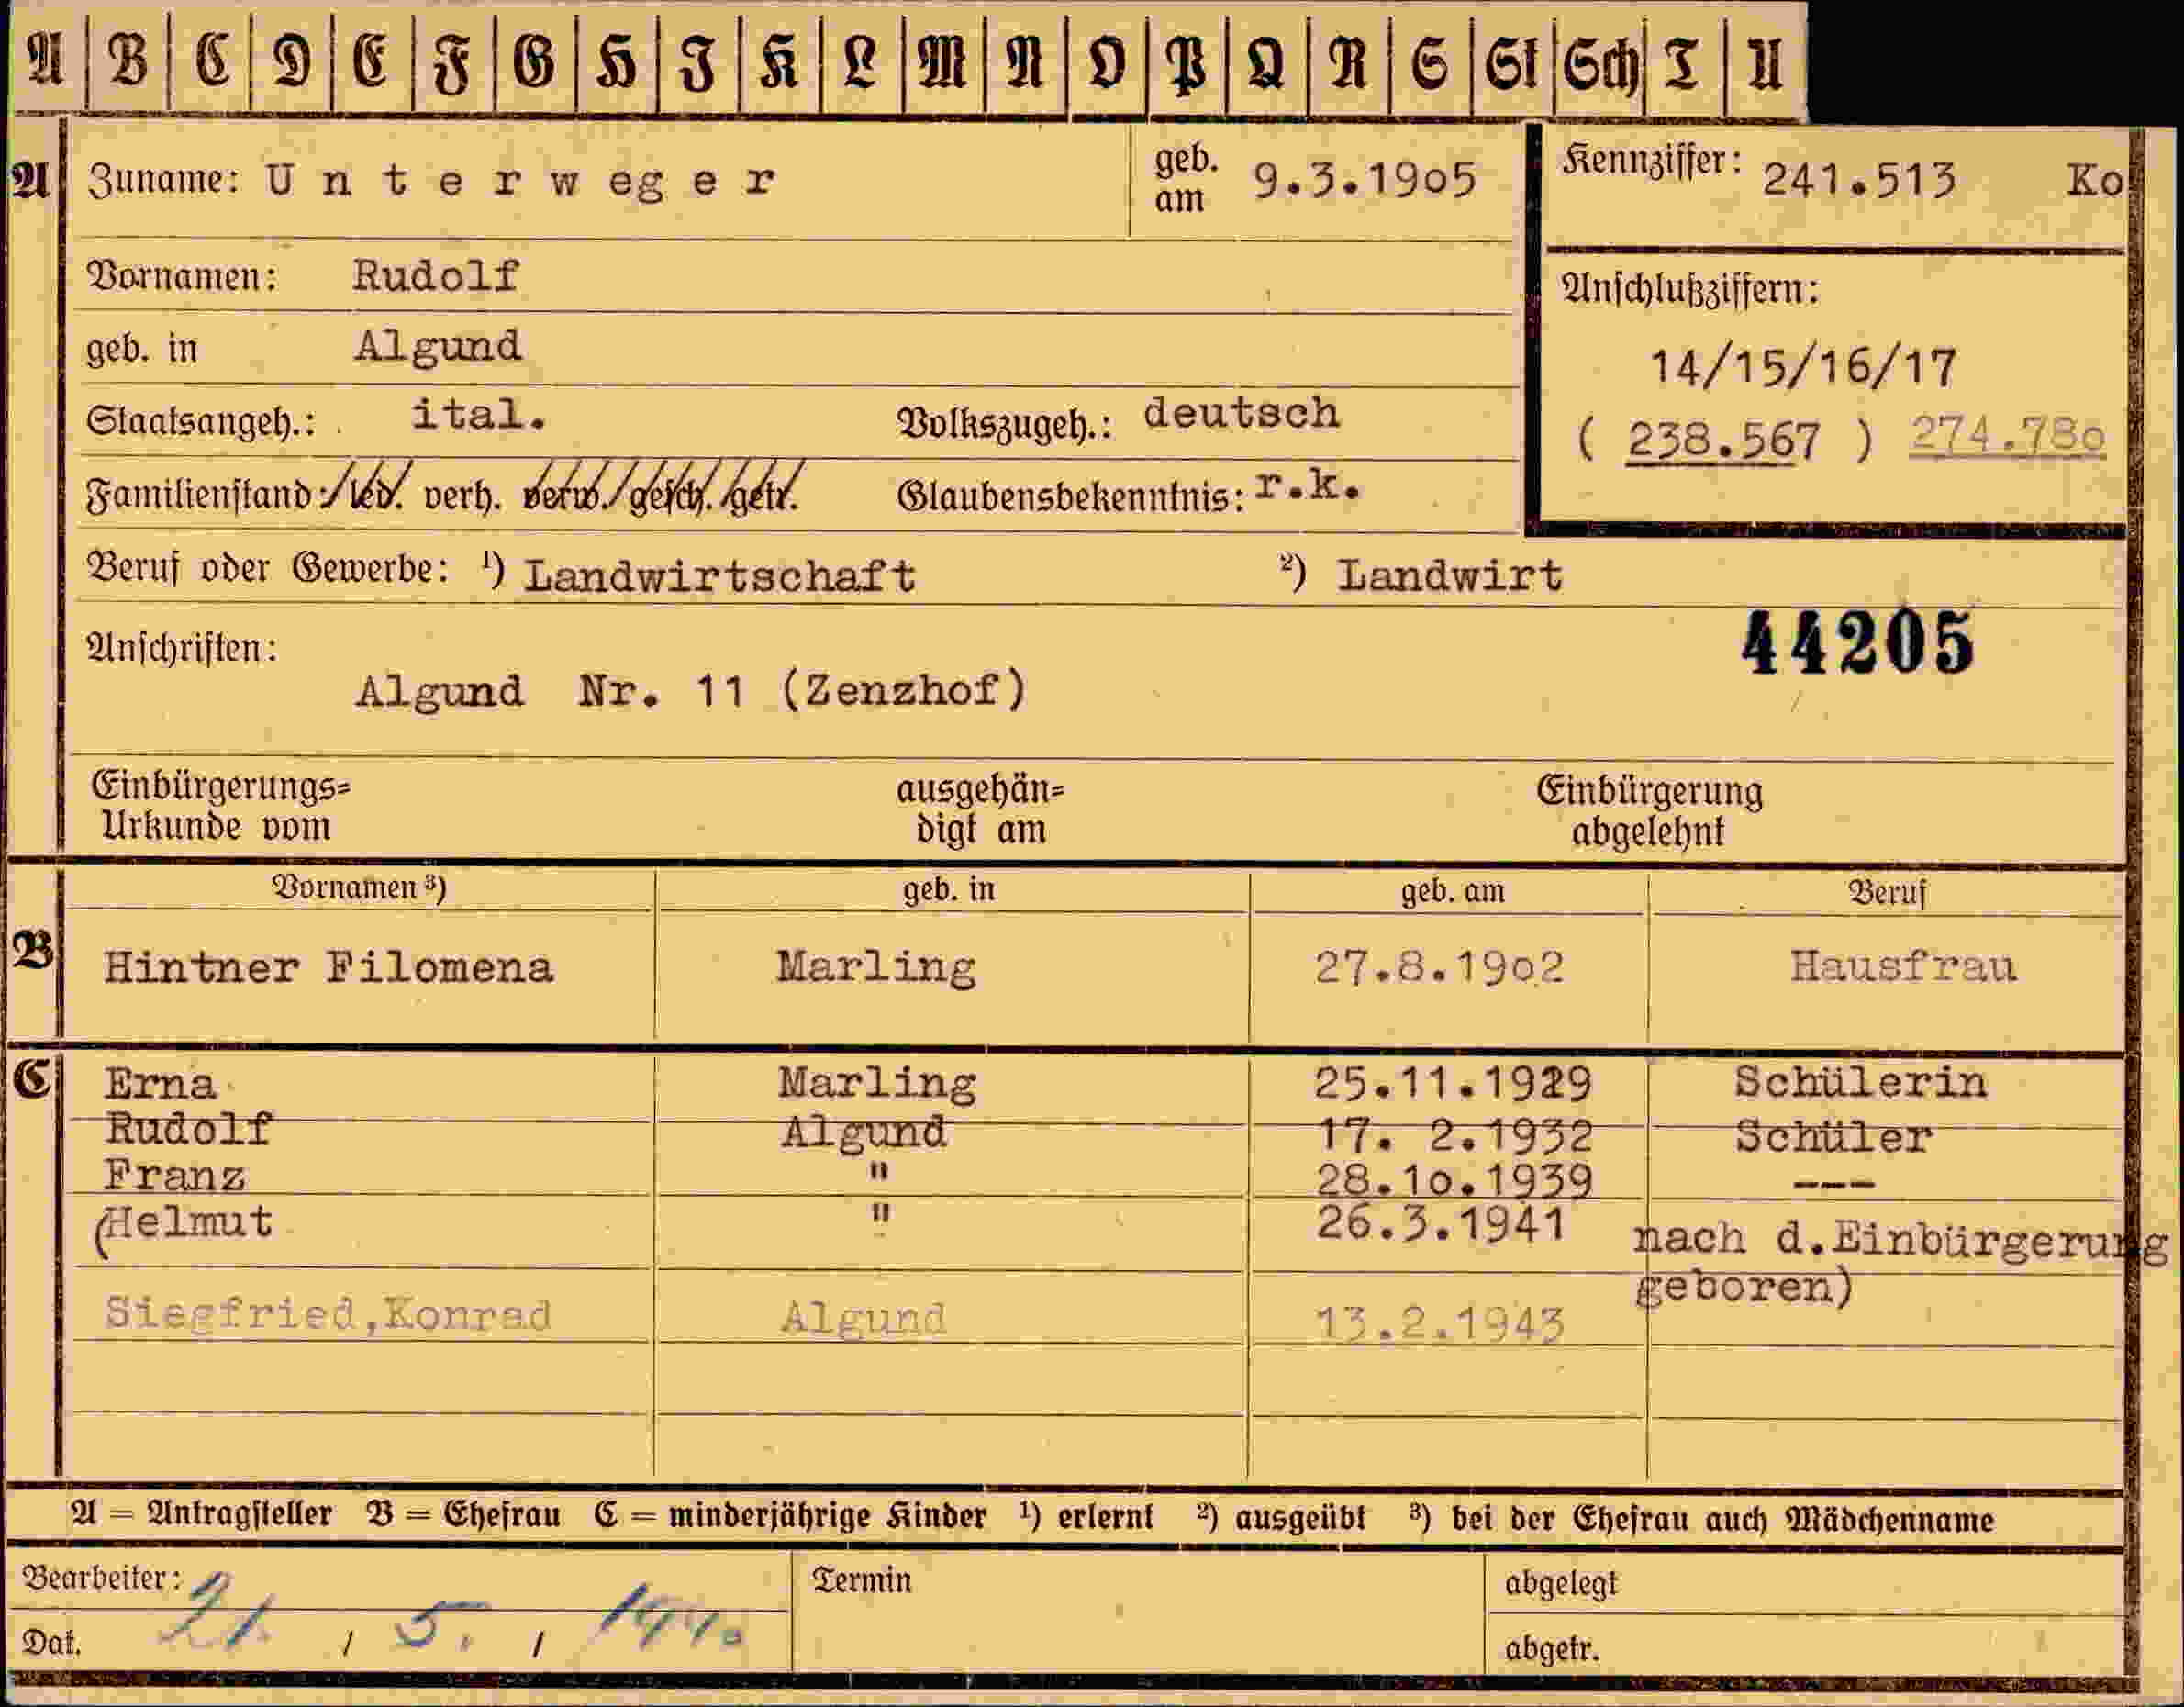 A B C D E F G H I K L M N O P Q R S St Sch T U
A Zuname: Unterweger geb. am 9.3.1905 Kennziffer: 241.513 Ko
Vornamen: Rudolf
Anschlußziffern:
geb. in Algund
14/15/16/17
Staatsangeh.: ital. Volkszugeh.: deutsch
( 238.567 ) 274.780
Familienstand: led. verh. verw. gesch. getr. Glaubensbekenntnis: r.k.
Beruf oder Gewerbe: ¹) Landwirtschaft ²) Landwirt
44205
Anschriften:
Algund Nr. 11 (Zenzhof)
Einbürgerungs= ausgehän= Einbürgerung
Urkunde vom digt am abgelehnt
Vornamen ³) geb. in geb. am Beruf
B Hintner Filomena Marling 27.8.1902 Hausfrau
C Erna Marling 25.11.1929 Schülerin
Rudolf Algund 17. 2.1932 Schüler
Franz " 28.10.1939 ---
(Helmut " 26.3.1941 nach d.Einbürgerung
geboren)
Siegfried,Konrad Algund 13.2.1943
A = Antragsteller B = Ehefrau C = minderjährige Kinder ¹) erlernt ²) ausgeübt ³) bei der Ehefrau auch Mädchenname
Bearbeiter: Termin abgelegt
Dat. 21. / 5. / 1940 abgetr.